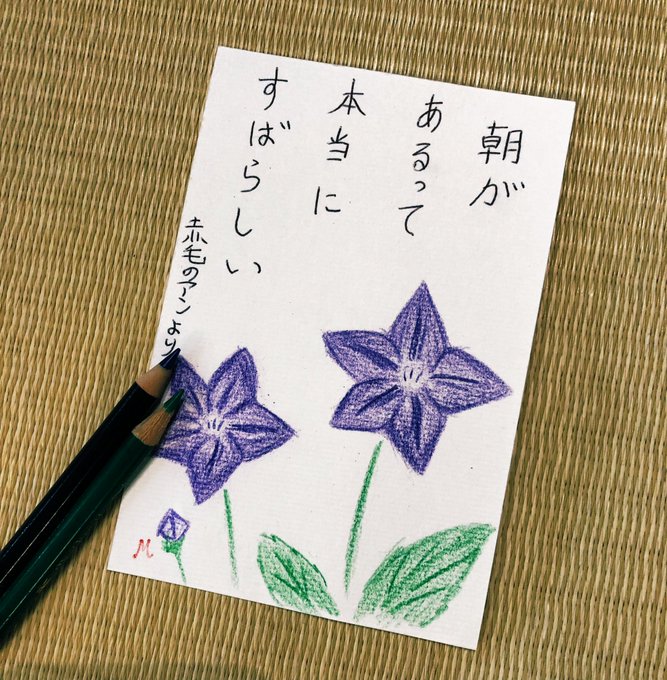 朝が
あるって
本当に
すばらしい
赤毛のアンより
M